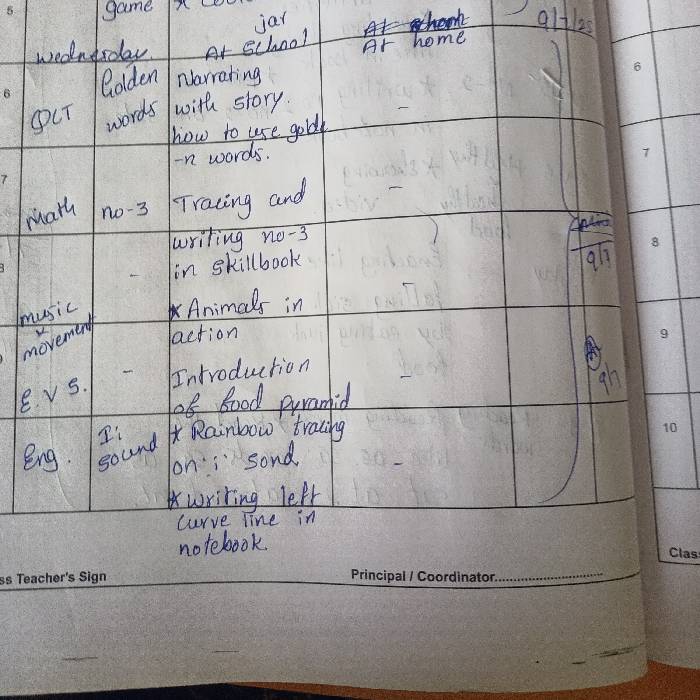 5 game
jar 9/7/25
wednesday At School At home
6 Golden Narrating 6
CLT words with story. -
how to use golde
-n words.
7 7
math no-3 Tracing and -
writing no-3
- in skillbook 9/7 8
music * Animals in -
movement action 9
E.V.S. - Introduction - 9/7
of food pyramid
Eng. I i sound * Rainbow tracing 10
on 'i' sond -
* writing left
curve line in
notebook
ss Teacher's Sign Principal / Coordinator Clas